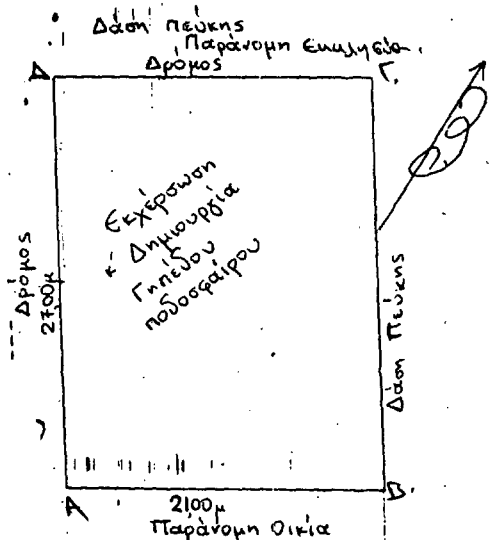 Δάση Πεύκης
Παράνομη Εκκλησία.
Δρόμος
Δ
Γ.
Εκχέρσωση
Δημιουργία
Γηπέδου
ποδοσφαίρου
Δρόμος
2700μ
Δάση Πεύκης
Α
Β.
2100μ
Παράνομη Οικία